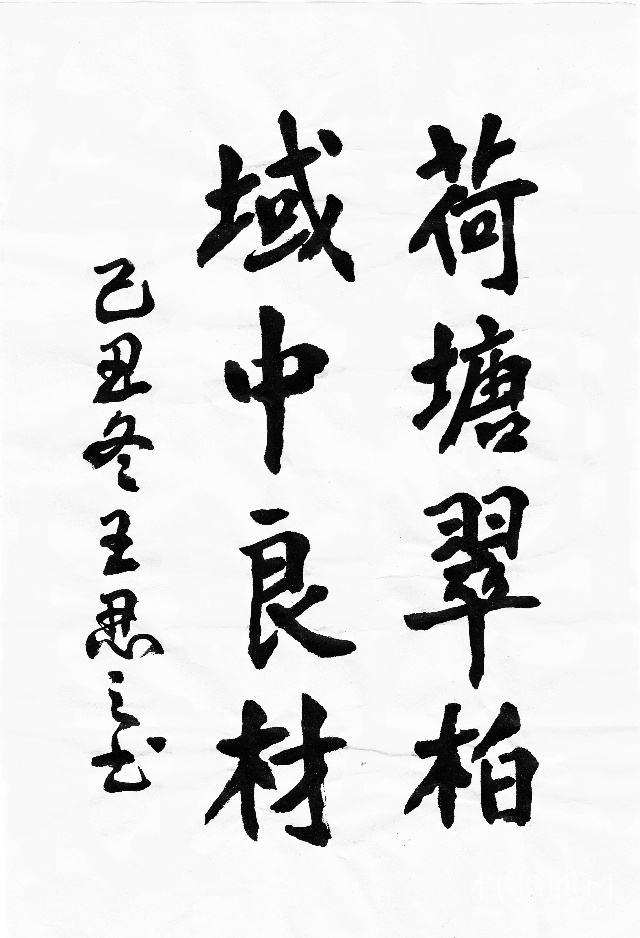 荷塘翠柏
域中良材
己丑冬王思之书